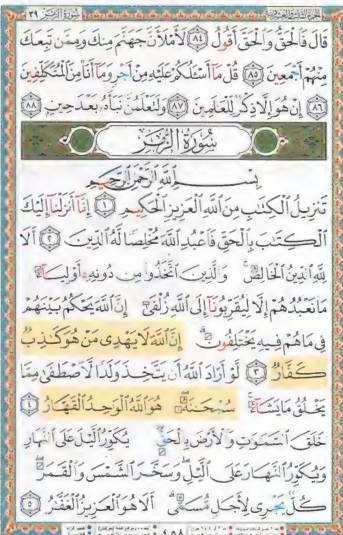 سُورَةُ الزُّمَرِ ٣٩
قَالَ فَٱلْحَقُّ وَٱلْحَقَّ أَقُولُ ٨٤ لَأَمْلَأَنَّ جَهَنَّمَ مِنكَ وَمِمَّن تَبِعَكَ
مِنْهُمْ أَجْمَعِينَ ٨٥ قُلْ مَآ أَسْـَٔلُكُمْ عَلَيْهِ مِنْ أَجْرٍ وَمَآ أَنَا۠ مِنَ ٱلْمُتَكَلِّفِينَ
٨٦ إِنْ هُوَ إِلَّا ذِكْرٌ لِّلْعَٰلَمِينَ ٨٧ وَلَتَعْلَمُنَّ نَبَأَهُۥ بَعْدَ حِينٍۭ ٨٨
سُورَةُ الزُّمَرِ
بِسْمِ ٱللَّهِ ٱلرَّحْمَٰنِ ٱلرَّحِيمِ
تَنزِيلُ ٱلْكِتَٰبِ مِنَ ٱللَّهِ ٱلْعَزِيزِ ٱلْحَكِيمِ ١ إِنَّآ أَنزَلْنَآ إِلَيْكَ
ٱلْكِتَٰبَ بِٱلْحَقِّ فَٱعْبُدِ ٱللَّهَ مُخْلِصًا لَّهُ ٱلدِّينَ ٢ أَلَا
لِلَّهِ ٱلدِّينُ ٱلْخَالِصُ ۚ وَٱلَّذِينَ ٱتَّخَذُوا۟ مِن دُونِهِۦٓ أَوْلِيَآءَ
مَا نَعْبُدُهُمْ إِلَّا لِيُقَرِّبُونَآ إِلَى ٱللَّهِ زُلْفَىٰٓ إِنَّ ٱللَّهَ يَحْكُمُ بَيْنَهُمْ
فِى مَا هُمْ فِيهِ يَخْتَلِفُونَ ۗ إِنَّ ٱللَّهَ لَا يَهْدِى مَنْ هُوَ كَٰذِبٌ
كَفَّارٌ ٣ لَّوْ أَرَادَ ٱللَّهُ أَن يَتَّخِذَ وَلَدًا لَّٱصْطَفَىٰ مِمَّا
يَخْلُقُ مَا يَشَآءُ ۚ سُبْحَٰنَهُۥ ۖ هُوَ ٱللَّهُ ٱلْوَٰحِدُ ٱلْقَهَّارُ ٤
خَلَقَ ٱلسَّمَٰوَٰتِ وَٱلْأَرْضَ بِٱلْحَقِّ ۖ يُكَوِّرُ ٱلَّيْلَ عَلَى ٱلنَّهَارِ
وَيُكَوِّرُ ٱلنَّهَارَ عَلَى ٱلَّيْلِ ۖ وَسَخَّرَ ٱلشَّمْسَ وَٱلْقَمَرَ ۖ
كُلٌّ يَجْرِى لِأَجَلٍ مُّسَمًّى ۗ أَلَا هُوَ ٱلْعَزِيزُ ٱلْغَفَّٰرُ ٥
٤٥٨